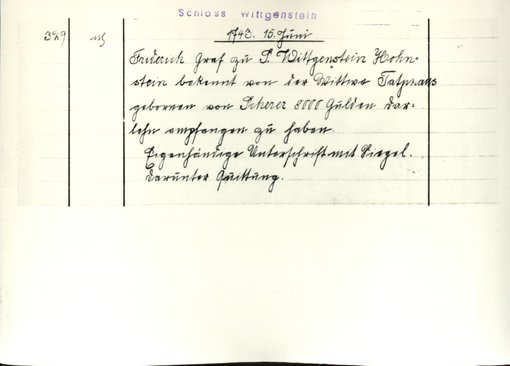 Schloss Wittgenstein
329
1743. 15. Juni
Friderich Graf zu S. Wittgenstein Hohn-
stein bekennt von der Wittwe
geborenen von Scherer 8000 Gulden Dar-
lehn empfangen zu haben.
Eigenhändige Unterschrift mit Siegel.
Darunter Quittung.